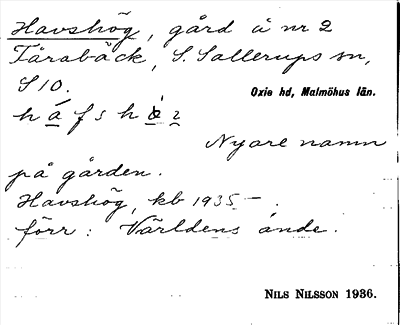 Havshög, gård å nr 2
Tårabäck, S. Sallerups sn,
S 10.
Oxie hd, Malmöhus län.
Nyare namn
på gården.
Havshög, kb 1935 – .
förr: Världens ände.
NILS NILSSON 1936.